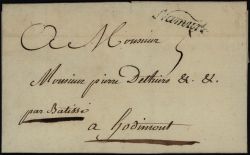 Namur
A Monsieur
Monsieur pierre Dethiers &. &.
par Batisse
a hodimont